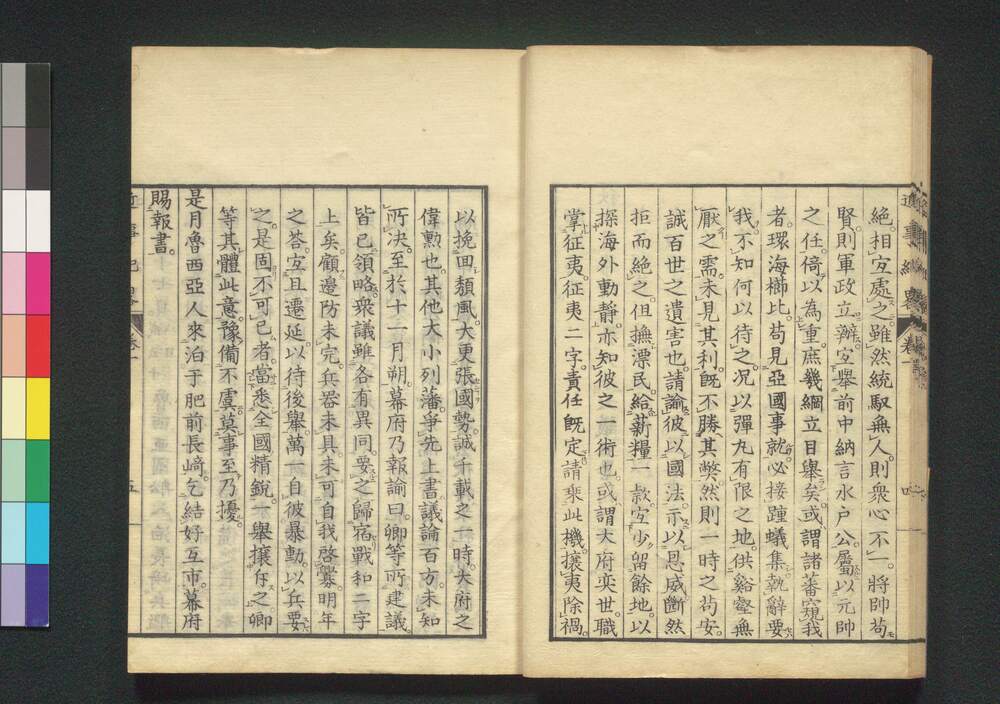 絶。相宜處之。雖然統馭無人則衆心不一。將帥苟
賢。則軍政立辦。宜擧前中納言水戸公屬以元帥
之任。倚以為重。庶幾綱立目擧矣。或謂諸蕃窺我
者。環海櫛比。苟見亞國事就。必接踵蟻集執辭要
我。不知何以待之。况以彈丸有限之地。供谿壑無
厭之需。未見其利。既不勝其弊。然則一時之苟安。
誠百世之遺害也。請諭彼以國法。示以恩威斷然
拒而絶之。但撫漂民。給薪糧一款。宜少留餘地。以
探海外動静。亦知彼之一術也。或謂大府奕世。職
掌征夷。征夷二字。責任既定。請乘此機。攘夷除禍。
以挽回頽風。大更張國勢。誠千載之一時。大府之
偉勲也。其他大小列藩。爭先上書。議論百方。未知
所決。至於十一月朔。幕府乃報諭曰。卿等所建議。
皆已領略。衆議雖各有異同。要之歸宿戰和二字
上矣。顧邊防未完。兵器未具。未可自我啓釁。明年
之答。宜且遷延。以待後擧。萬一自彼暴動。以兵要
之。是固不可已者。當悉全國精鋭。一擧攘斥之。卿
等其體此意。豫備不虞。莫事至乃擾。
是月魯西亞人來泊于肥前長崎。乞結好互市。幕府
賜報書。